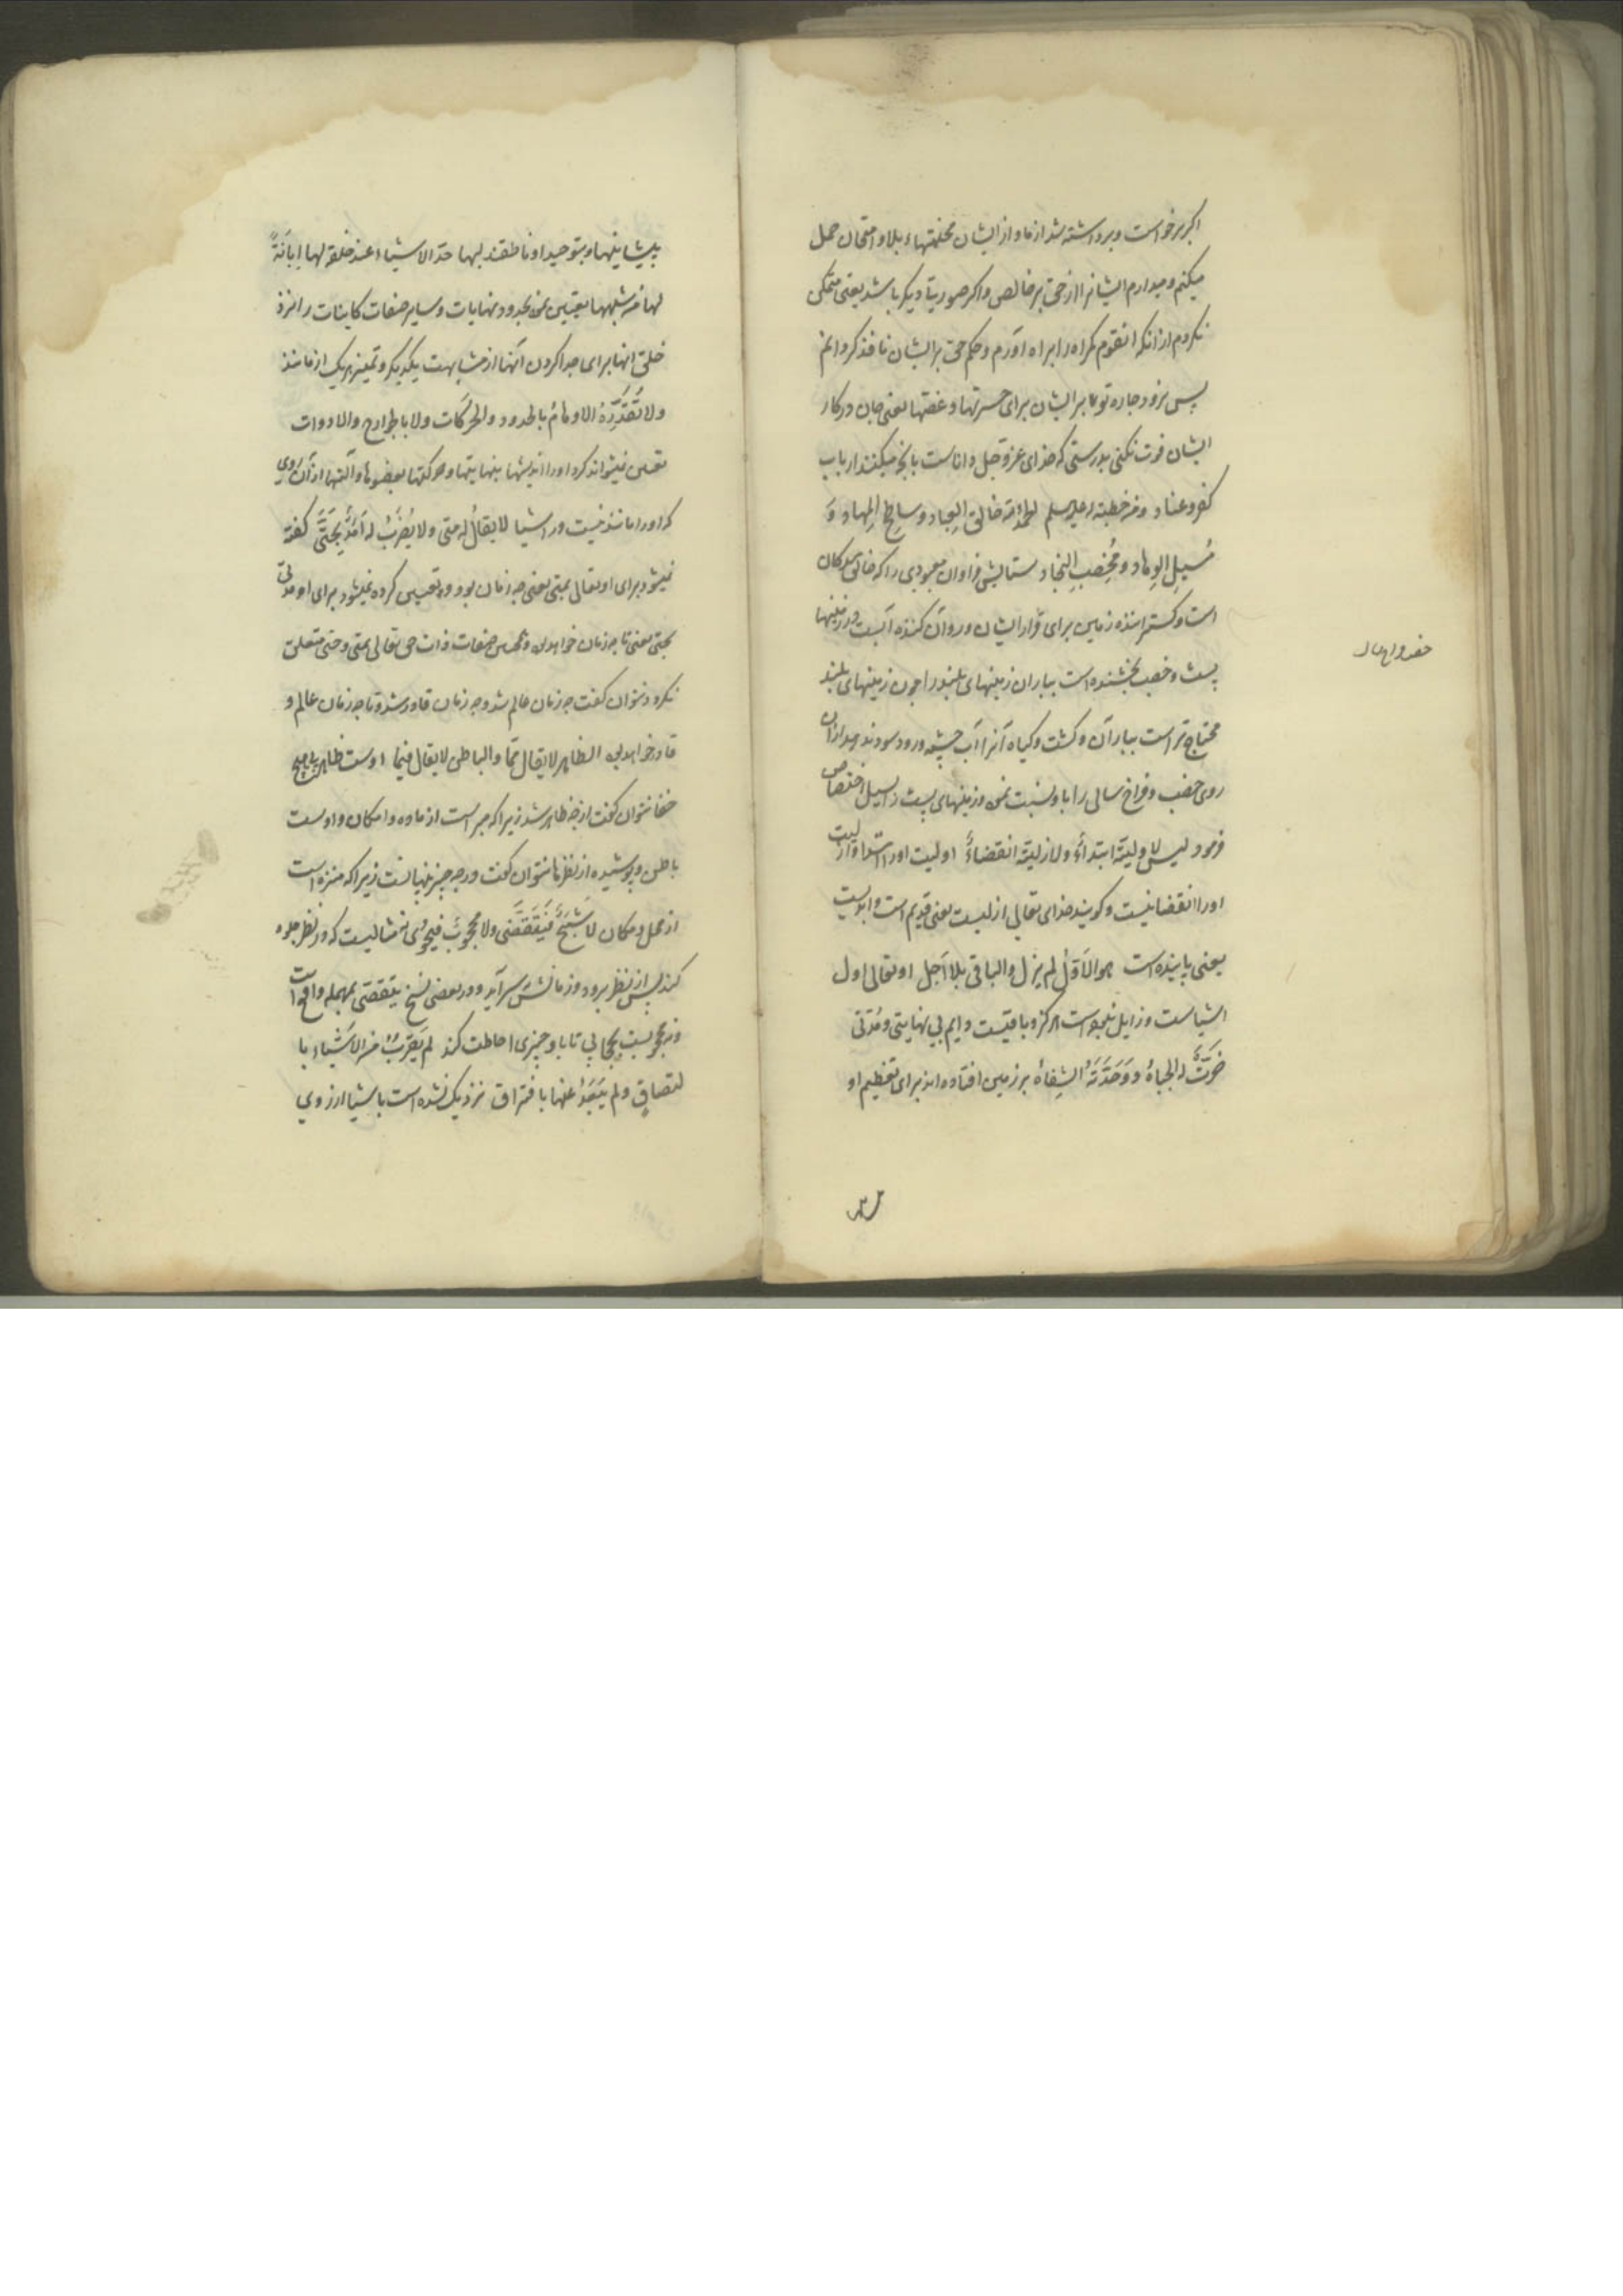 اکر برخواست و برداشته شد از ما و از ایشان محنتهاء بلا و امتحان حمل
میکنم و میدارم ایشانرا از حق بر خالص و اکر صورتی دیکر باشد یعنی متمکن
نکردم از انکه انقوم کمراه را براه آورم و حکم حق بر ایشان نافذ کردانم
پس نرود جان تو بر ایشان برای حسرتها و غصّها یعنی جان در کار
ایشان فوت نکنی بدرستی که خدای عزّ و جل داناست بانچه میکنند ارباب
کفر و عناد و من خطبته له علیه السلم الحمد لله خالق العِباد و ساطِح المِهاد وَ
مُسیلِ الوِهاد و مُخصِبِ النِجاد ستایش فراوان معبودی را که خالق بندکان
است و کسترانندهٔ زمین برای قرار ایشان و روان کنندهٔ آبست در زمینهای
پست و خصب بخشنده است بباران زمینهای بلند را چون زمینهای بلند
محتاج تر است بباران و کشت و کیاه آنرا آب چشمه و رود سود ندهد ازان
روی خصب و فراخ سالی را باو نسبت نمود و زمینهای پست را بسیل اختصاص
فرمود لیس لاولیّته ابتداءٌ ولا لازلیّته انقضاءٌ اولیت اورا ابتدا و ازلیت
اورا انقضا نیست و کویند خدای تعالی ازلیست یعنی قدیم است و ابدیست
یعنی پاینده است هو الاَوّلُ لم یزل والباقی بلا اَجَل او تعالی اول
اشیاست و زایل نمیشود هرکز و باقیست دایم بی نهایتی و مُدّتی
خَرَّتْ له الجِباهُ و وَحَّدَتْهُ الشِفاهُ بر زمین افتاده اند برای تعظیم او
پیشانیها و بتوحید او ناطقند لبها حدّ الاشیاء عند خلقه لها اِبانَةً
لها من شبهها تعیین نمود بحدود و نهایات و سایر صفات کاینات را نزد
خلق انها برای جدا کردن آنها از مشابهت یکدیکر و تمیز هریک از مانند
ولا تُقَدِّرُهُ الاوهامُ بالحدود والحَرَکات ولا بالجوارح والادوات
تعیین نمیتواند کرد اورا اندیشها بنهایتها و حرکتها و بعضوها و آلتها از آن روی
که اورا مانند نیست در اشیا لا یقالُ له متی ولا یُضرَبُ له اَمَدٌ بِحَتّی کفته
نمیشود برای او تعالی بمتی یعنی چه زمان بود و تعیین کرده نمیشود برای او مدتی
بحتی یعنی تا چه زمان خواهد بود و همچنین صفات ذات حق تعالی بمتی و حتی متعلق
نکردد نتوان کفت چه زمان عالم شد و چه زمان قادر شد و تا چه زمان عالم و
قادر خواهد بود الظاهر لا یقال ممّا والباطن لا یقال فیما اوست ظاهر بی هیچ
خفا نتوان کفت از چه ظاهر شد زیرا که مبرا است از ماده و امکان و اوست
باطن و پوشیده از نظرها نتوان کفت در چه چیز نهانست زیرا که منزه است
از محل و مکان لا شَبَحٌ فَیَتَقَضّی ولا محجوبٌ فیُحوی نه مثالیست که در نظر جلوه
کند پس از نظر برود و زمانش سرآید و در بعضی نسخ یتقصّی بمهمله واقع است
و نه محجوبست بحجابی تا باو چیزی احاطت کند لم یَقرُبْ من الاَشیاءِ با
لتصاقٍ ولم یَبعُدْ عنها بافتراق نزدیک نشده است باشیا از روی